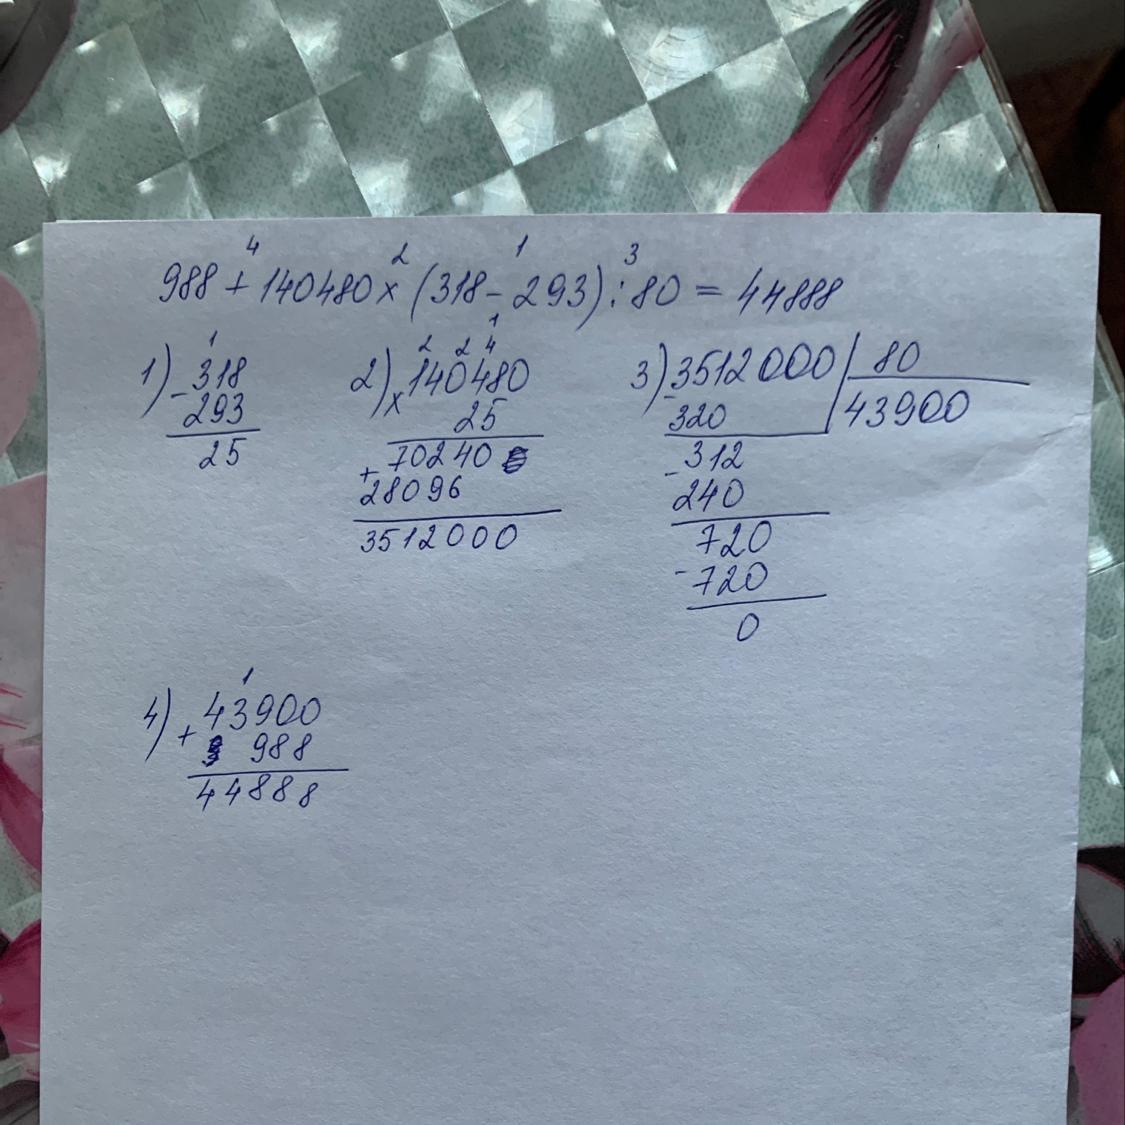 4 2 1 3
988 + 140480 x (318 - 293) : 80 = 44888
1) 1
- 318
293
25
2) 2 2 4 1
x 140480
25
+ 70240
28096
3512000
3) - 3512000 | 80
320 43900
- 312
240
720
- 720
0
4) 1
+ 43900
988
44888